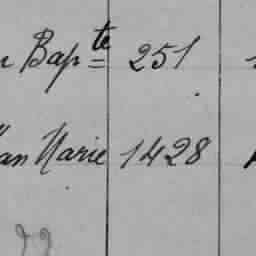 Bapte 251
an Marie 1428